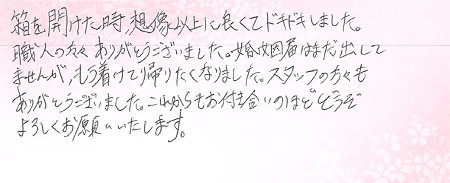 箱を開けた時、想像以上に良くてドキドキしました。
職人の方々ありがとうございました。婚姻届はまだ出して
ませんが、もう着けて帰りたくなりました。スタッフの方々も
ありがとうございました。これからもお付き合いのほどどうぞ
よろしくお願いいたします。